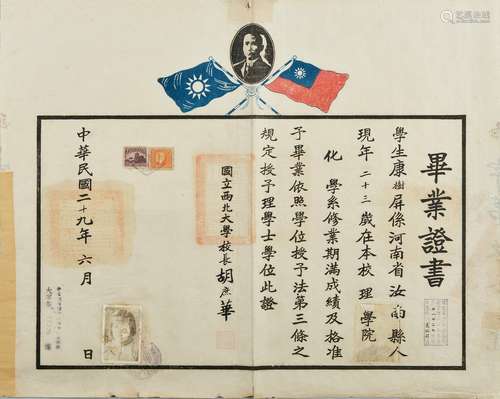 畢業證書
學生康樹屏係河南省汝南縣人
現年二十三歲在本校理學院
化學系修業期滿成績及格准
予畢業依照學位授予法第三條之
規定授予理學士學位此證
國立西北大學校長胡庶華
中華民國二十九年六月
日